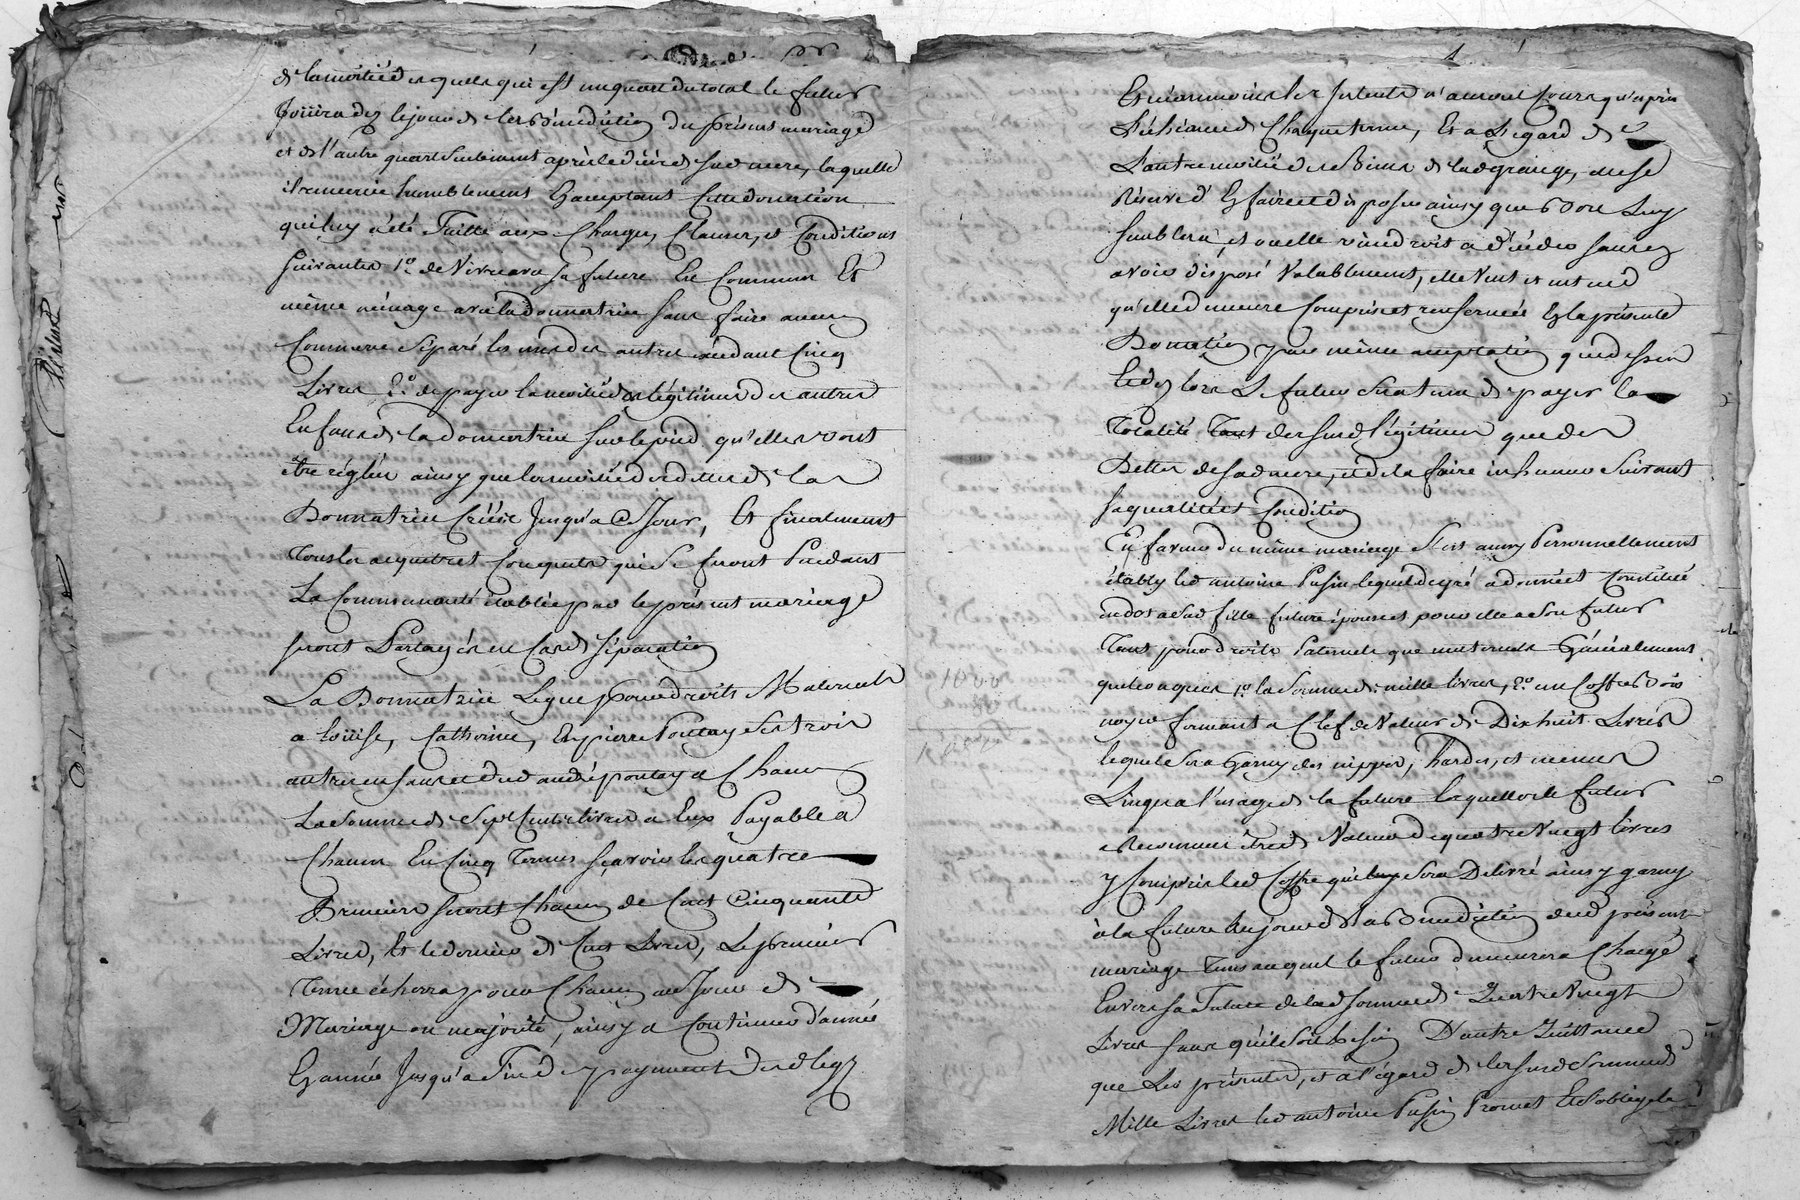 de la moitié desquels qui est un quart du total le futur
Jouira dez le jour de la Bénédiction du présent mariage
et de l'autre quart seulement après le décès de sad mere, laquelle
il remercie humblement En acceptant Cette donnation
qui luy a été Faitte aux Charges, Clauses, et Conditions
suivantes 1º. de Vivre avec sa future En Commun Et
même ménage avec la donnatrice sans faire aucun
Commerce séparé les uns des autres éxédant Cinq
Livres 2º. de payer la moitié des légitimes des autres
Enfans de la donnatrice sur le pied qu'elles vont
être réglées ainsy que la moitié des dettes de la
Donnatrice Créés Jusqu'a ce Jour, Et finalement
Tous les acquets et Conquets qui Se feront Pendant
La Communauté établie par le présent mariage
seront Partagés en Cas de séparation
La Donnatrice Legue pour droits Maternels
a Loüise, Catherine, Et pierre Pontay ses trois
autres enfans et dud andré pontay a Chacun
La Somme de Sept Cents livres a Eux Payable a
Chacun En Cinq Termes sçavoir les quatre
Premiers seront Chacun de Cent Cinquante
Livres, Et le dernier de Cent Livres, Le premier
Terme écherra pour Chacun au Jour de
Mariage ou majorité, ainsy a Continuer d'année
En année Jusqu'a Fin de payement desd legs
Et néanmoins les Interets n'auront Cours qu'après
L'échéance de Chaque terme, Et a L'égard de
L'autre moitié des Biens de lad grange, elle se
Réserve d'En faire et disposer ainsy que Bon Luy
semblera, et ou elle viendroit a décéder sans en
avoir disposé Valablement, elle veut et entend
qu'elle demeure Comprise et renfermée En la présente
Donnation par même acceptation que dessus
lied dez lors Le futur sera tenu de payer la
Totalité Tant desd légitimes que des
Dettes de sad mere, et de la faire inhumer Suivant
sa qualité et Condition
En faveur du même mariage S'est aussy Personnellement
étably led antoine Pupin lequel de gré a donné et Constitué
en dot a sad fille future épouse et pour elle a Son futur
Tant pour droits Paternels que maternels Généralement
quelconques 1º. la Somme de mille livres, 2º. un Coffre Bois
noyer fermant a Clef de Valeur de Dix huit Livres
lequel Sera Garny des nippes, hardes, et menus
Linges a l'usage de la future lesquelles le futur
a Reconnu être de Valeur de quatre Vingt livres
y Compris led Coffre qui luy Sera Délivré ainsy garny
à la future Au jour de la Bénédiction dud présent
mariage Tems auquel le futur demeurera Chargé
Envers sa Future de lad somme de Quatre Vingt
Livres sans qu'il Soit besoin D'autre Quittance
que Les présentes, et a l'égard de la susd Somme de
Mille Livres led antoine Pupin Promet Et S'oblige la